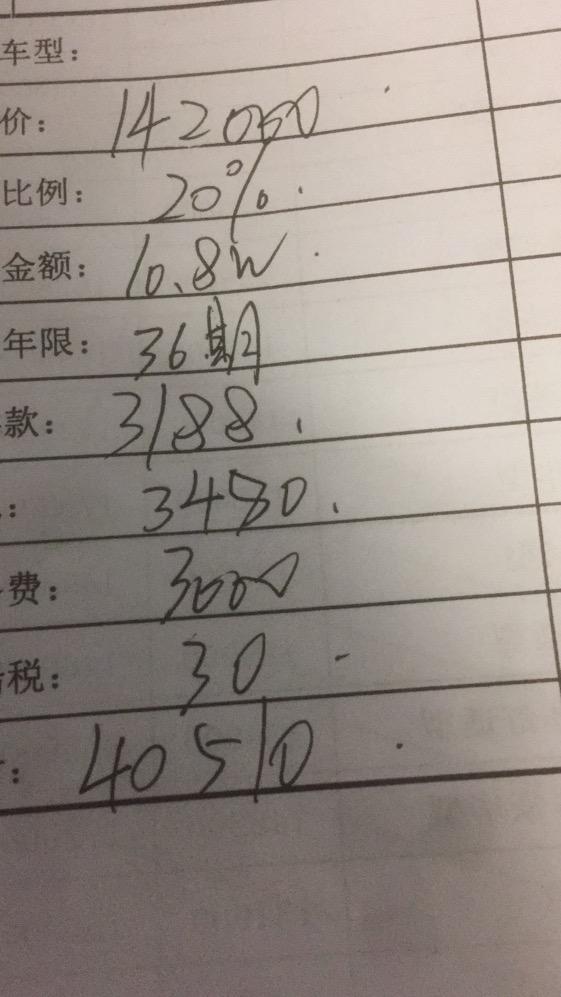 车型：
价： 142000
比例： 20%
金额： 10.8W
年限： 36期
款： 3188
： 3480
费： 3000
税： 30
： 40510